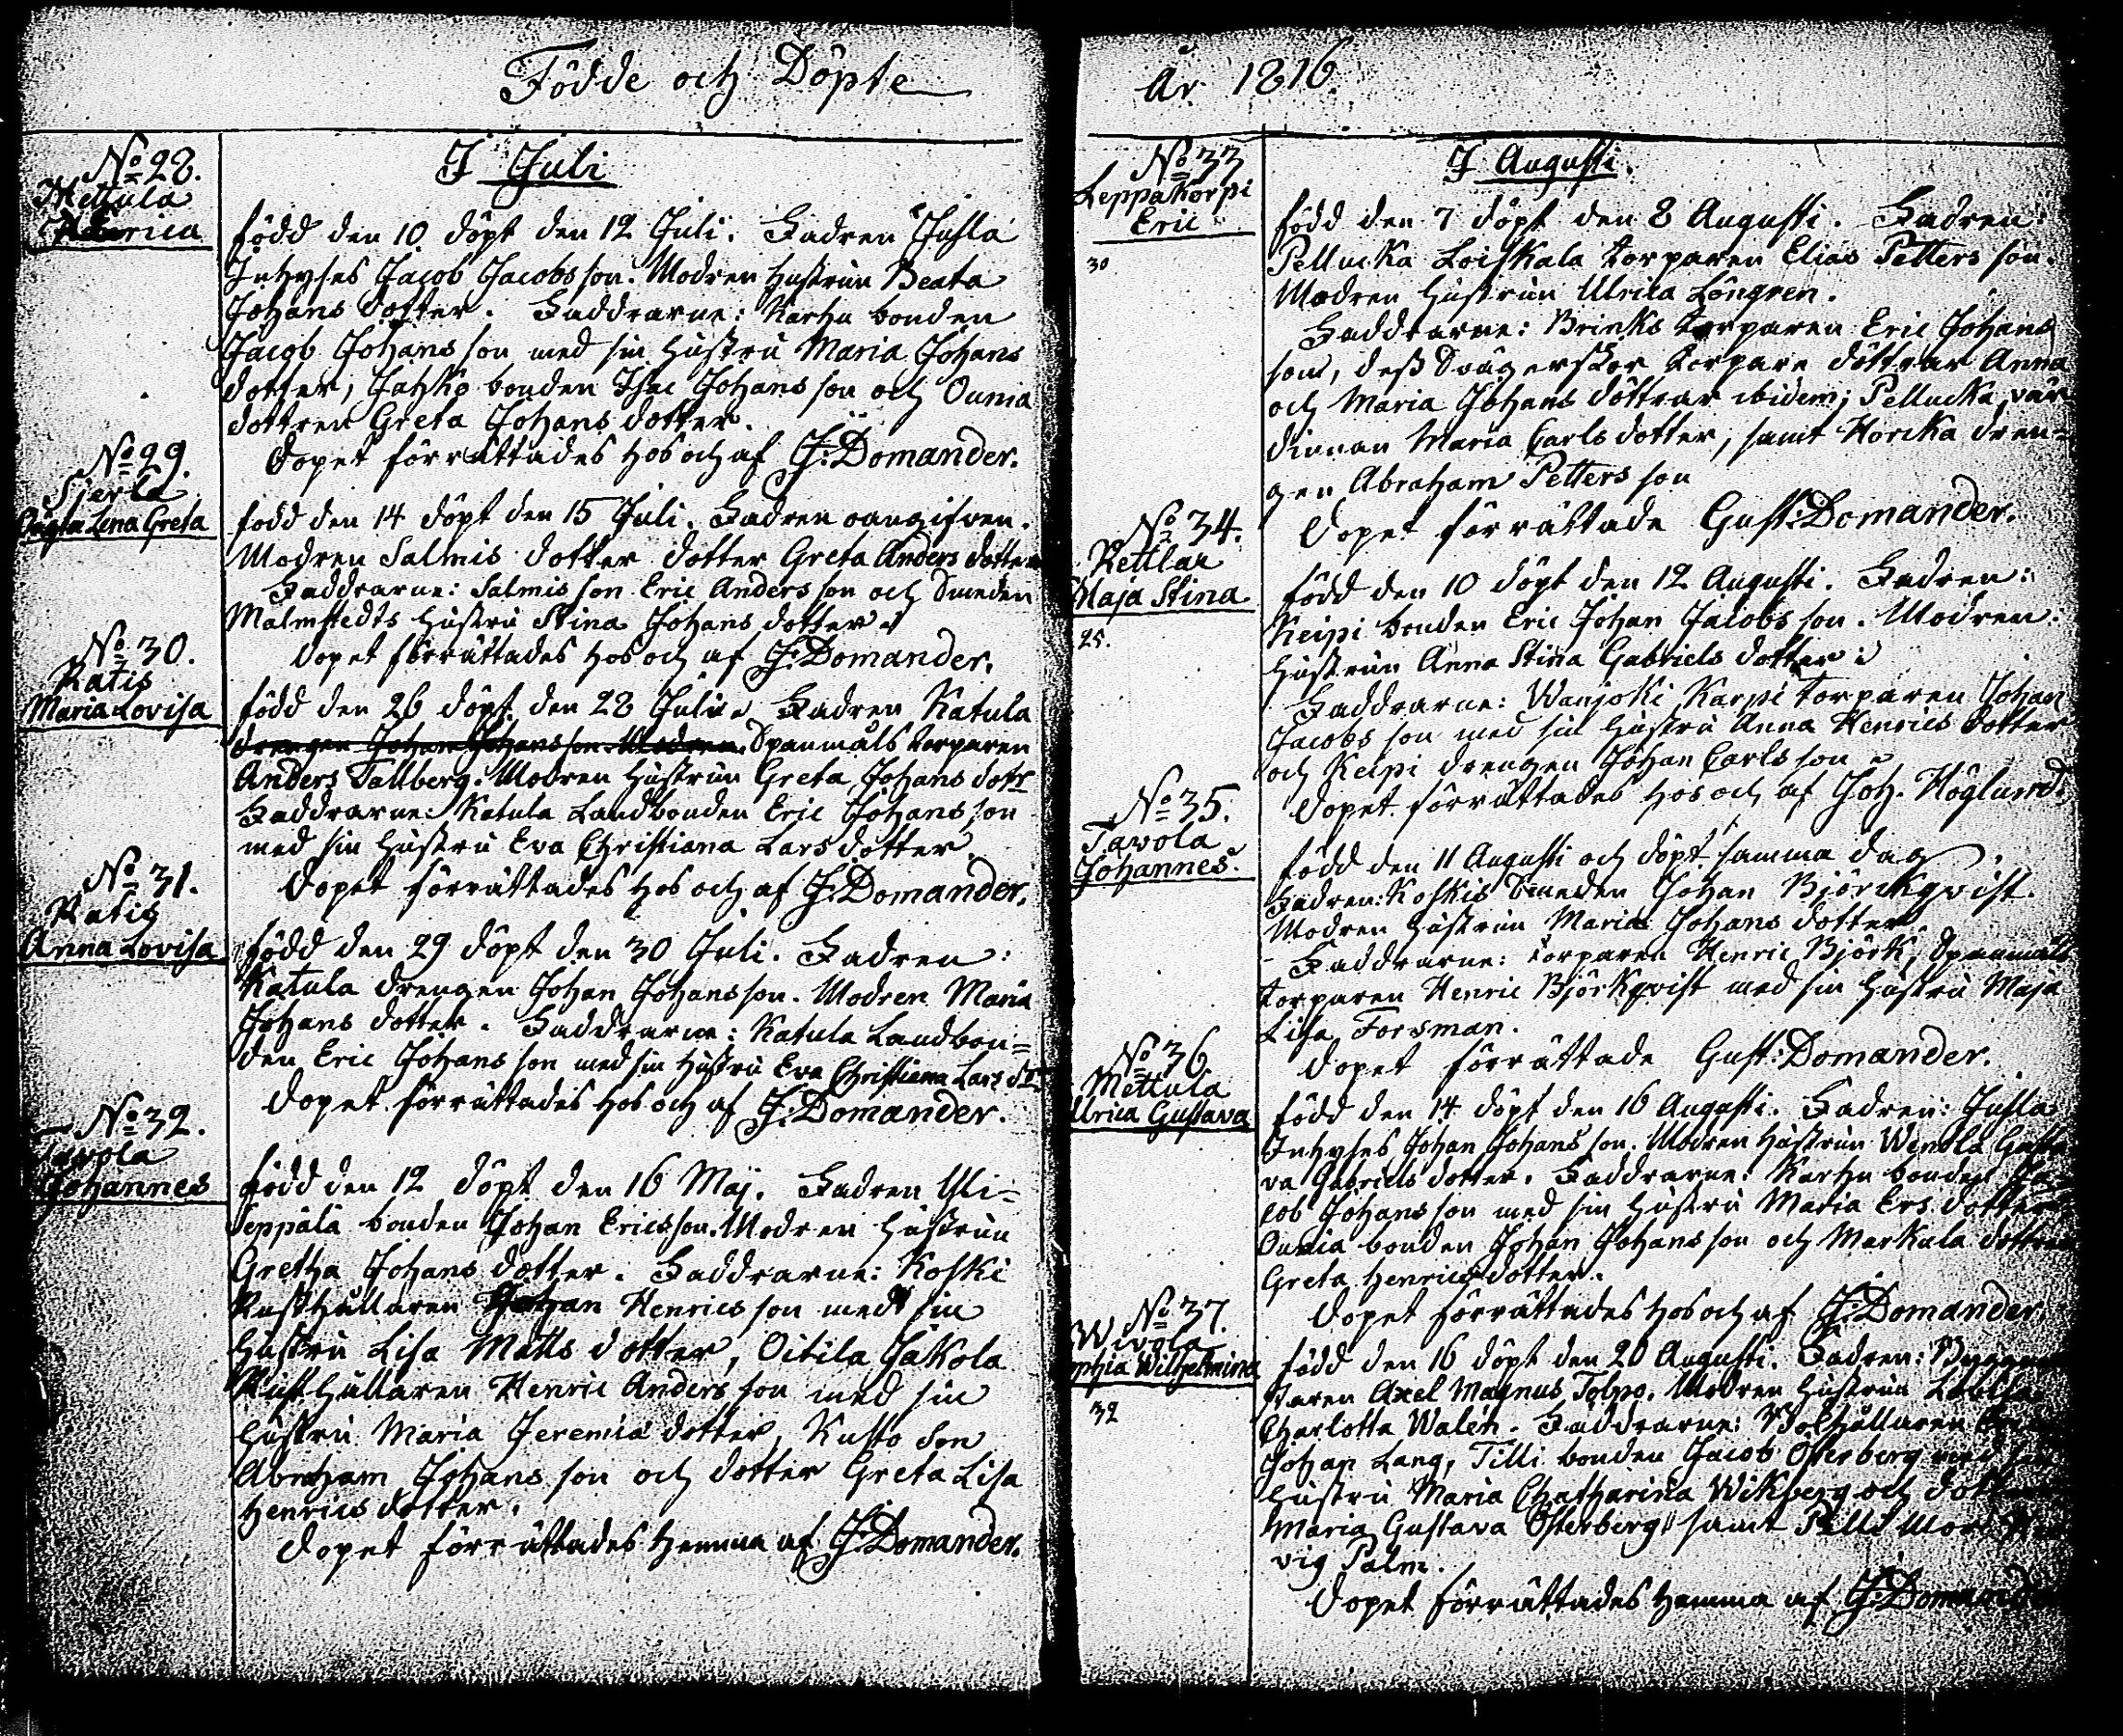 Födde och Döpte
I Juli
No 28.
Mettula
född den 10 döpt den 12 Juli. Fadren Jusla
Inhyses Jacob Jacobsson. Modren Hustrun Beata
Johans dotter. Faddrarne: Karhu bonden
Jacob Johans son med sin Hustru Maria Johans
dotter, bonden Isac Johans son och Ounia
dottren Greta Johans dotter.
Dopet förrättades hos och af J: Domander.
No 29.
Sjerla
Lena Greta
född den 14 döpt den 15 Juli. Fadren oangifven.
Modren Salmis dotter dotter Greta Anders dotter
Faddrarne: Salmis son Eric Anders son och Smeden
Malmstedts Hustru Stina Johans dotter
Dopet förrättades hos och af J: Domander.
No 30.
Ratis
Maria Lovisa
född den 26 döpt den 28 Julii Fadren Katula
drengen Johan Johansson. Modren Spanmåls torparen
Anders Tallberg. Modren Hustrun Greta Johans dotr
Faddrarne: Katula Landbonden Eric Johans son
med sin Hustru Eva Christiana Lars dotter
Dopet förrättades hos och af J: Domander.
No 31.
Ratis
Anna Lovisa
född den 29 döpt den 30 Juli. Fadren:
Katula drengen Johan Johansson. Modren Maria
Johans dotter. Faddrarne: Katula Landbon=
den Eric Johans son med sin Hustru Eva Christiana Lars dr
Dopet förrättades hos och af J: Domander.
No 32.
Tavola
Johannes
född den 12 döpt den 16 Maj. Fadren Yli=
Seppälä bonden Johan Ericsson. Modren Hustrun
Gretha Johans dotter. Faddrarne: Koski
Rusthållaren Johan Henrics son med sin
Hustru Lisa Matts dotter, Oitila Jakola
Rusthållaren Henric Anders son med sin
Hustru Maria Jeremiä dotter, Kutto Son
Abraham Johans son och dotter Greta Lisa
Henrics dotter.
Dopet förrättades Hemma af J: Domander.
År 1816.
I Augusti.
No 33
Leppakorpi
Eric
30
född den 7 döpt den 8 Augusti. Fadren:
Pellucka Loiskala torparen Elias Petters son.
Modren Hustrun Ulrica Löngren.
Faddrarne: Brinks torparen Eric Johans
son, dess Svägerskor torpare döttrar Anna
och Maria Johans döttrar ibidem; Pellucka vär
dinnan Maria Carls dotter, samt Horcka dren=
gen Abraham Petters son
Dopet förrättade Gust: Domander.
No 34.
Kettlar
Maja Stina
25.
född den 10 döpt den 12 Augusti. Fadren:
Keipi bonden Eric Johan Jacobs son. Modren:
Hustrun Anna Stina Gabriels dotter:
Faddrarne: Wanjoki Karpi torparen Johan
Jacobs son med sin Hustru Anna Henrics dotter
och Keipi drengen Johan Carls son
Dopet förrättades hos och af Joh. Höglund.
No 35.
Tavola
Johannes.
född den 11 Augusti och döpt samma dag.
Fadren: Koskis Smeden Johan Björckqvist.
Modren Hustrun Maria Johans dotter.
Faddrarne: torparen Henric Björk, Spanmåls
torparen Henric Björkqvist med sin Hustru Maja
Lisa Forsman.
Dopet förrättade Gust: Domander.
No 36
Mettula
Ulrica Gustava
född den 14 döpt den 16 Augusti. Fadren: Jusla
Inhyses Johan Johans son. Modren Hustrun Wendla Gusta
va Gabriels dotter. Faddrarne: Karhu bonden Ja=
cob Johans son med sin Hustru Maria Ers dotter
Ounia bonden Johan Johans son och Markula dottren
Greta Henrics dotter.
Dopet förrättades hos och af J: Domander.
No 37.
Wivola
Sophia Wilhelmina
32
född den 16 döpt den 20 Augusti. Fadren:
Axel Magnus Tolpo. Modren Hustrun Lovisa
Charlotta Walén. Faddrarne:
Johan Lang, Tilli bonden Jacob Österberg med sin
Hustru Maria Chatharina Wikberg och dottren
Maria Gustava Österberg samt
vig Palm.
Dopet förrättades Hemma af J: Domander